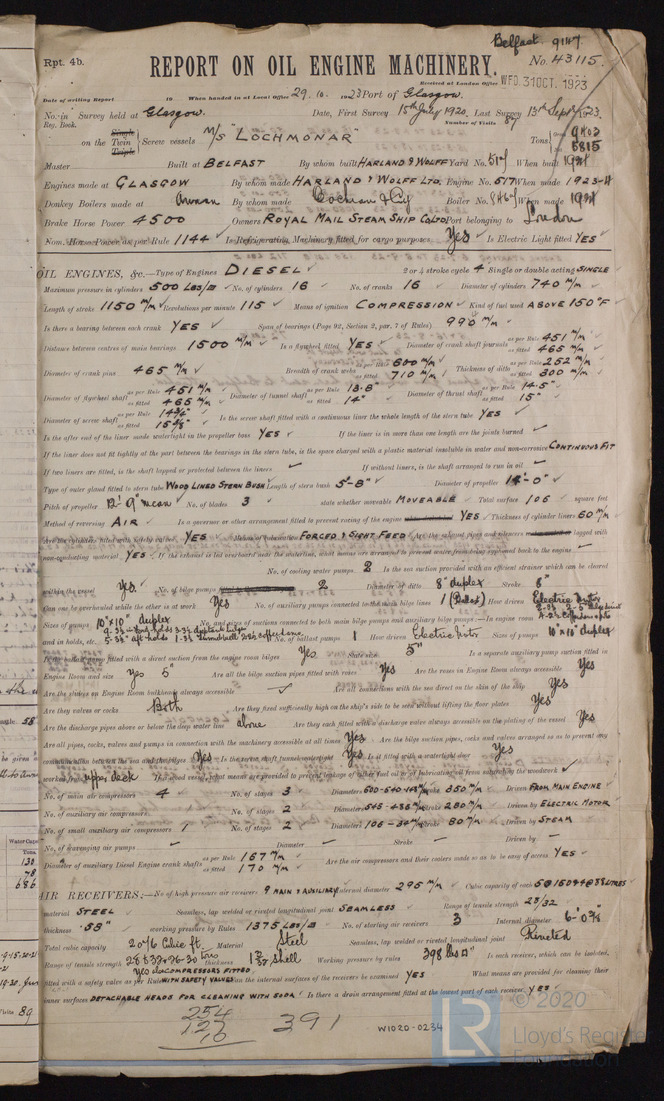 Belfast. 9147.
Rpt. 4b.
REPORT ON OIL ENGINE MACHINERY.
No. 43115.
Received at London Office WED. 31 OCT. 1923
Date of writing Report 19 When handed in at Local Office 29. 10. 1923 Port of Glasgow.
No. in Survey held at Glasgow. Date, First Survey 15th July 1920, Last Survey 13th Sept 1923.
Reg. Book. Number of Visits 89
Single
on the Twin Screw vessels M/S "LOCHMONAR" Tons
Triple
Gross 9463
Net 5815
Master Built at BELFAST By whom built HARLAND & WOLFF Yard No. When built 1924
Engines made at GLASGOW By whom made HARLAND & WOLFF LTD. Engine No. 517 When made 1923-4
Donkey Boilers made at Annan By whom made Cochran & Coy Boiler No. When made 1924
Brake Horse Power 4500 Owners ROYAL MAIL STEAM SHIP Co LTD Port belonging to London
Nom. Horse Power as per Rule 1144 Is Refrigerating Machinery fitted for cargo purposes Yes Is Electric Light fitted YES
OIL ENGINES, &c.—Type of Engines DIESEL 2 or 4 stroke cycle 4 Single or double acting SINGLE
Maximum pressure in cylinders 500 LBS/□" No. of cylinders 16 No. of cranks 16 Diameter of cylinders 740 m/m
Length of stroke 1150 m/m Revolutions per minute 115 Means of ignition COMPRESSION Kind of fuel used ABOVE 150°F
Is there a bearing between each crank YES Span of bearings (Page 92, Section 2, par. 7 of Rules) 990 m/m
Distance between centres of main bearings 1500 m/m Is a flywheel fitted YES Diameter of crank shaft journals as per Rule 451 m/m as fitted 465 m/m
Diameter of crank pins 465 m/m Breadth of crank webs as per Rule 600 m/m as fitted 710 m/m Thickness of ditto as per Rule 252 m/m as fitted 300 m/m
Diameter of flywheel shaft as per Rule 451 m/m as fitted 465 m/m Diameter of tunnel shaft as per Rule 13.8" as fitted 14" Diameter of thrust shaft as per Rule 14.5" as fitted 15"
Diameter of screw shaft as per Rule 14¾" as fitted 15⅜" Is the screw shaft fitted with a continuous liner the whole length of the stern tube YES
Is the after end of the liner made watertight in the propeller boss YES If the liner is in more than one length are the joints burned
If the liner does not fit tightly at the part between the bearings in the stern tube, is the space charged with a plastic material insoluble in water and non-corrosive CONTINUOUS FIT
If two liners are fitted, is the shaft lapped or protected between the liners If without liners, is the shaft arranged to run in oil
Type of outer gland fitted to stern tube WOOD LINED STERN BUSH Length of stern bush 5'-8" Diameter of propeller
Pitch of propeller 12'-9" mean No. of blades 3 state whether moveable MOVEABLE Total surface 106 square feet
Method of reversing AIR Is a governor or other arrangement fitted to prevent racing of the engine YES Thickness of cylinder liners 60 m/m
Are the cylinders fitted with safety valves YES Means of lubrication FORCED & SIGHT FEED Are the exhaust pipes and silencers lagged with
non-conducting material YES If the exhaust is led overboard near the waterline, what means are arranged to prevent water from being syphoned back to the engine
No. of cooling water pumps 2 Is the sea suction provided with an efficient strainer which can be cleared
within the vessel Yes. No. of bilge pumps 2 Diameter of ditto 8" duplex Stroke 8"
Can one be overhauled while the other is at work Yes No. of auxiliary pumps connected to the main bilge lines 1 (Ballast) How driven Electric Motor
Sizes of pumps 10"x10" duplex No. and sizes of suctions connected to both main bilge pumps and auxiliary bilge pumps:—In engine room
and in holds, etc. No. of ballast pumps 1 How driven Electric Motor Sizes of pumps 10"x10" duplex
Is the ballast pump fitted with a direct suction from the engine room bilges Yes State size 5" Is a separate auxiliary pump suction fitted in
Engine Room and size Yes 5" Are all the bilge suction pipes fitted with roses Yes Are the roses in Engine Room always accessible Yes
Are the sluices on Engine Room bulkheads always accessible Are all connections with the sea direct on the skin of the ship Yes
Are they valves or cocks Both Are they fixed sufficiently high on the ship's side to be seen without lifting the floor plates Yes
Are the discharge pipes above or below the deep water line above Are they each fitted with a discharge valve always accessible on the plating of the vessel Yes
Are all pipes, cocks, valves and pumps in connection with the machinery accessible at all times Yes Are the bilge suction pipes, cocks and valves arranged so as to prevent any
communication between the sea and the bilges Yes Is the screw shaft tunnel watertight Yes Is it fitted with a watertight door Yes
worked from upper deck If a wood vessel, what means are provided to prevent leakage of either fuel oil or of lubricating oil from saturating the woodwork
No. of main air compressors 4 No. of stages 3 Diameters Stroke 350 m/m Driven FROM MAIN ENGINE
No. of auxiliary air compressors No. of stages 2 Diameters 545-485 m/m Stroke 280 m/m Driven by ELECTRIC MOTOR
No. of small auxiliary air compressors 1 No. of stages 2 Diameters 106-34 m/m Stroke 80 m/m Driven by STEAM
No. of scavenging air pumps Diameter Stroke Driven by
Diameter of auxiliary Diesel Engine crank shafts as per Rule 167 m/m as fitted 170 m/m Are the air compressors and their coolers made so as to be easy of access YES
AIR RECEIVERS:—No. of high pressure air receivers 9 MAIN & AUXILIARY Internal diameter 295 m/m Cubic capacity of each
material STEEL Seamless, lap welded or riveted longitudinal joint SEAMLESS Range of tensile strength 28/32
thickness .58" working pressure by Rules 1375 LBS/□" No. of starting air receivers 3 Internal diameter
Total cubic capacity Cubic ft. Material Steel Seamless, lap welded or riveted longitudinal joint Riveted
Range of tensile strength thickness Shell Working pressure by rules 398 lbs □" Is each receiver, which can be isolated,
fitted with a safety valve as per Rule Yes COMPRESSORS FITTED WITH SAFETY VALVES Can the internal surfaces of the receivers be examined YES What means are provided for cleaning their
inner surfaces DETACHABLE HEADS FOR CLEANING WITH SODA. Is there a drain arrangement fitted at the lowest part of each receiver YES
254
127
10
391
W1020-0234
© 2020
LR
Lloyd's Register
Foundation